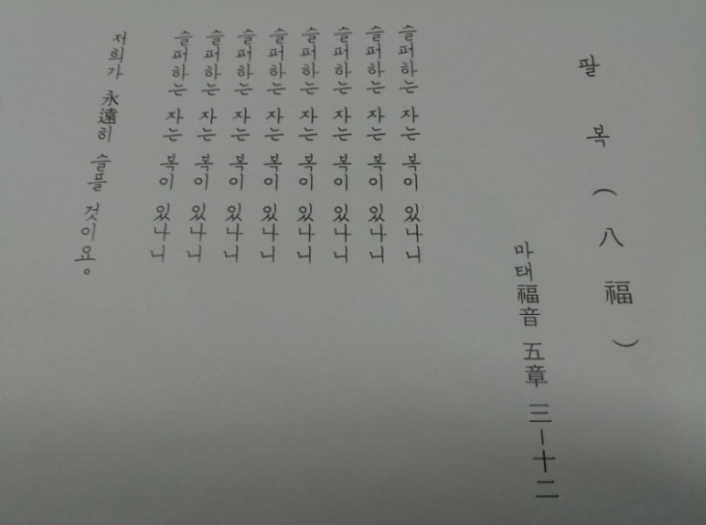 팔복(八福)
마태福音 五章 三－十二
슬퍼하는 자는 복이 있나니
슬퍼하는 자는 복이 있나니
슬퍼하는 자는 복이 있나니
슬퍼하는 자는 복이 있나니
슬퍼하는 자는 복이 있나니
슬퍼하는 자는 복이 있나니
슬퍼하는 자는 복이 있나니
슬퍼하는 자는 복이 있나니
저희가 永遠히 슬플 것이요。